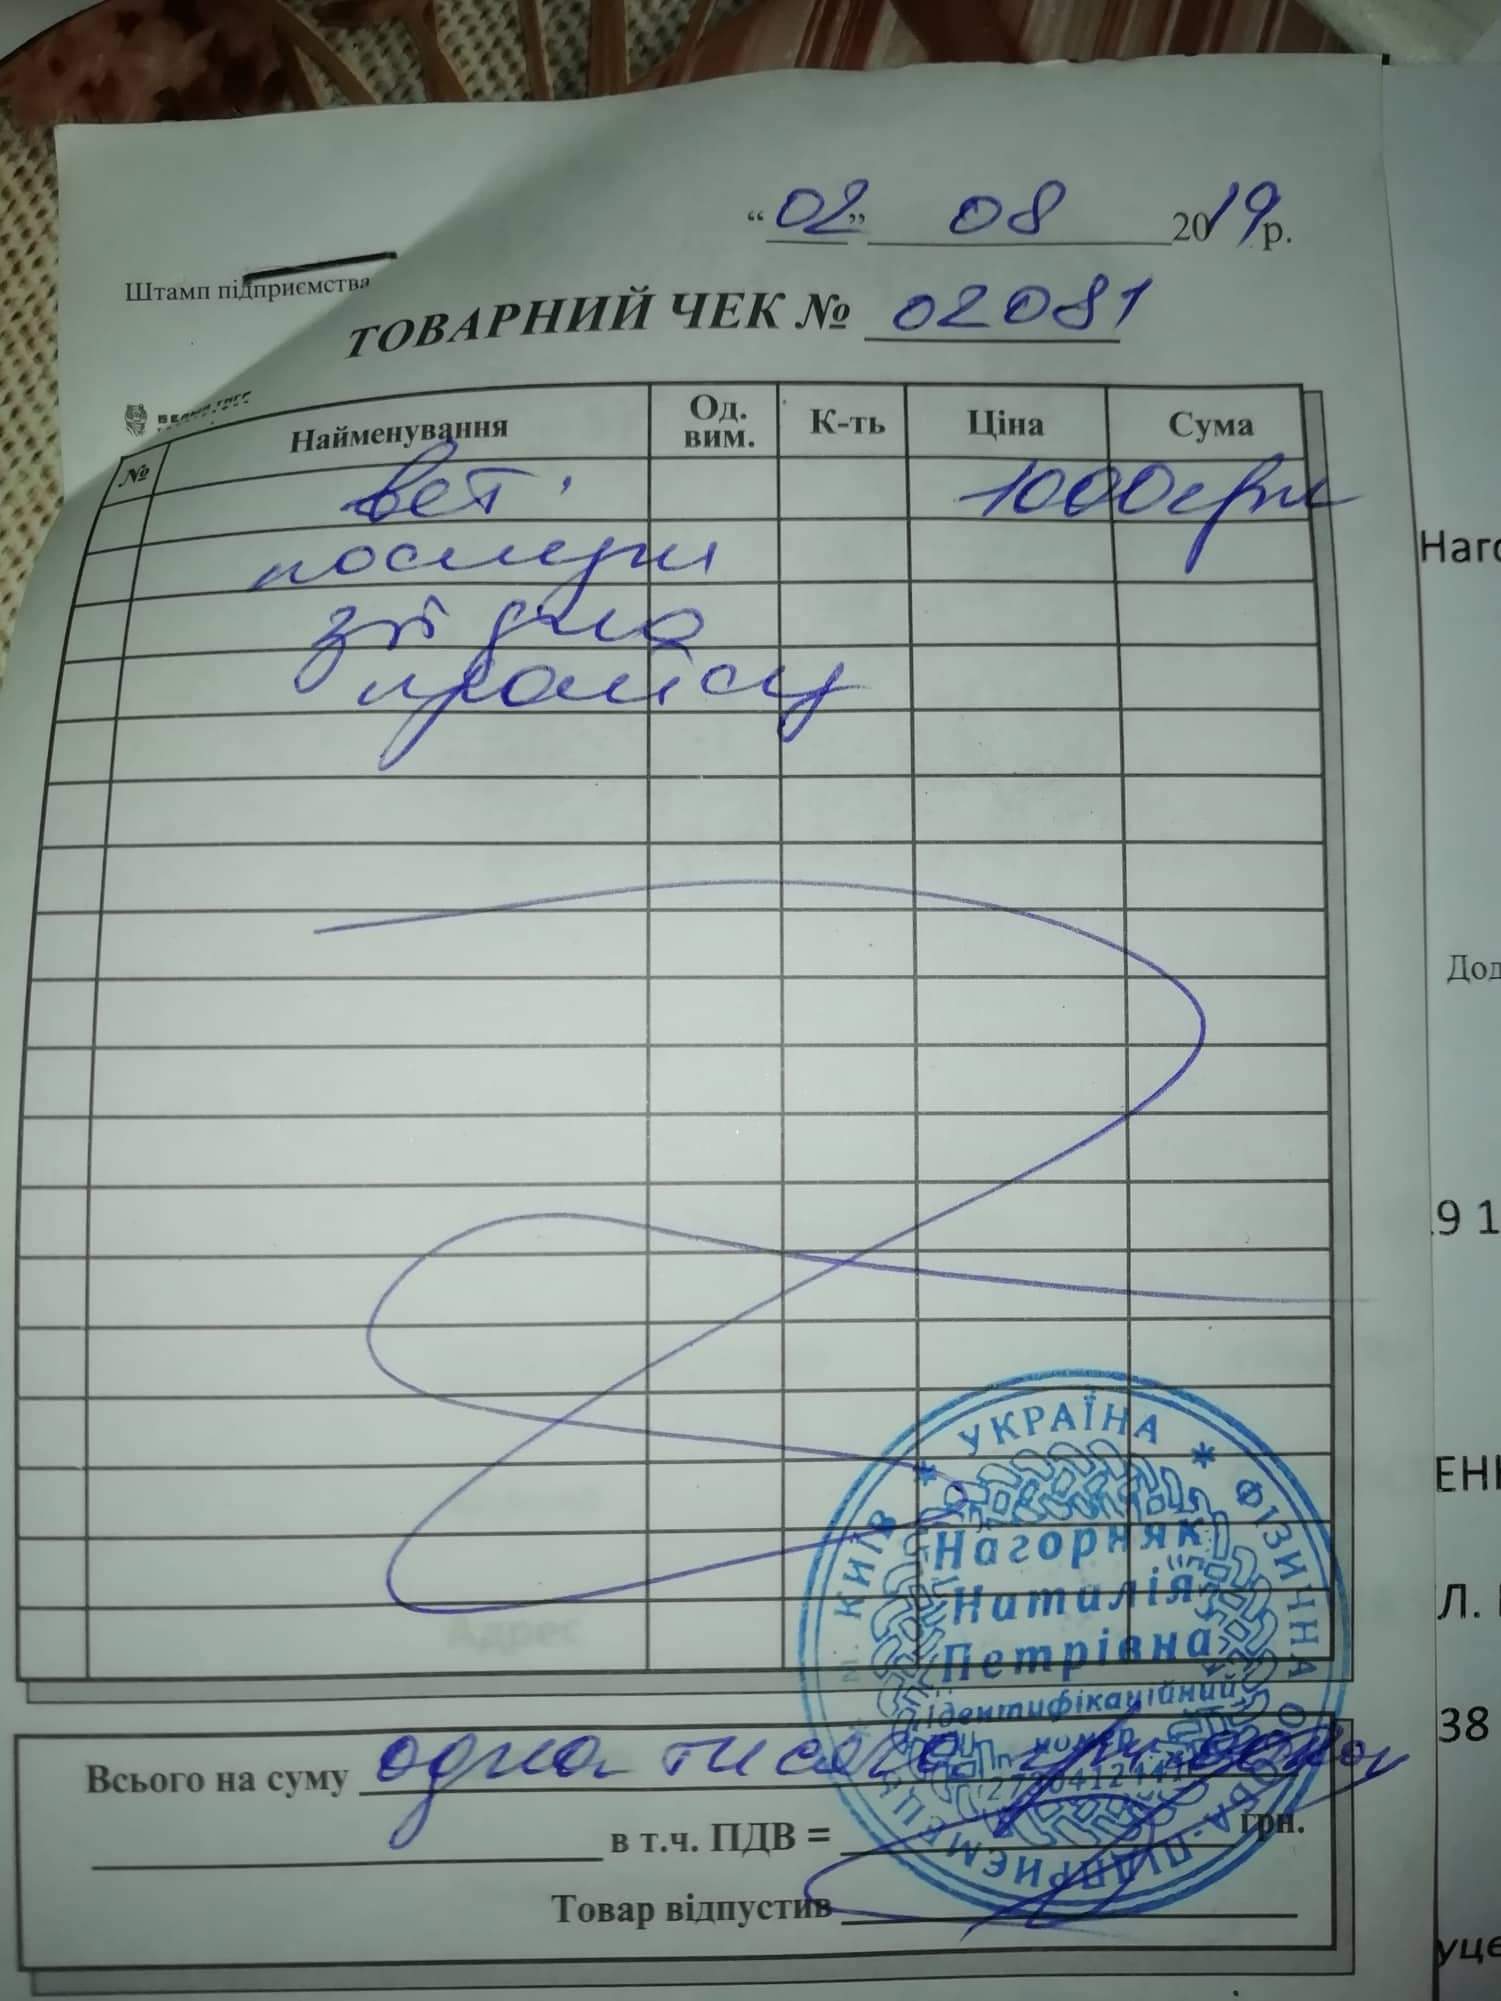 “02” 08 2019р.
Штамп підприємства
ТОВАРНИЙ ЧЕК № 02081
№ Найменування Од. вим. К-ть Ціна Сума
вет. 1000грн
послуги
згідно
прайсу
УКРАЇНА * ФІЗИЧНА ОСОБА-ПІДПРИЄМЕЦЬ * м. КИЇВ *
Нагорняк
Наталія
Петрівна
ідентифікаційний
номер
Всього на суму одна тисяча гривень
в т.ч. ПДВ = грн.
Товар відпустив
Наго
Дод
9 1
ЕН
Л.
38
уце